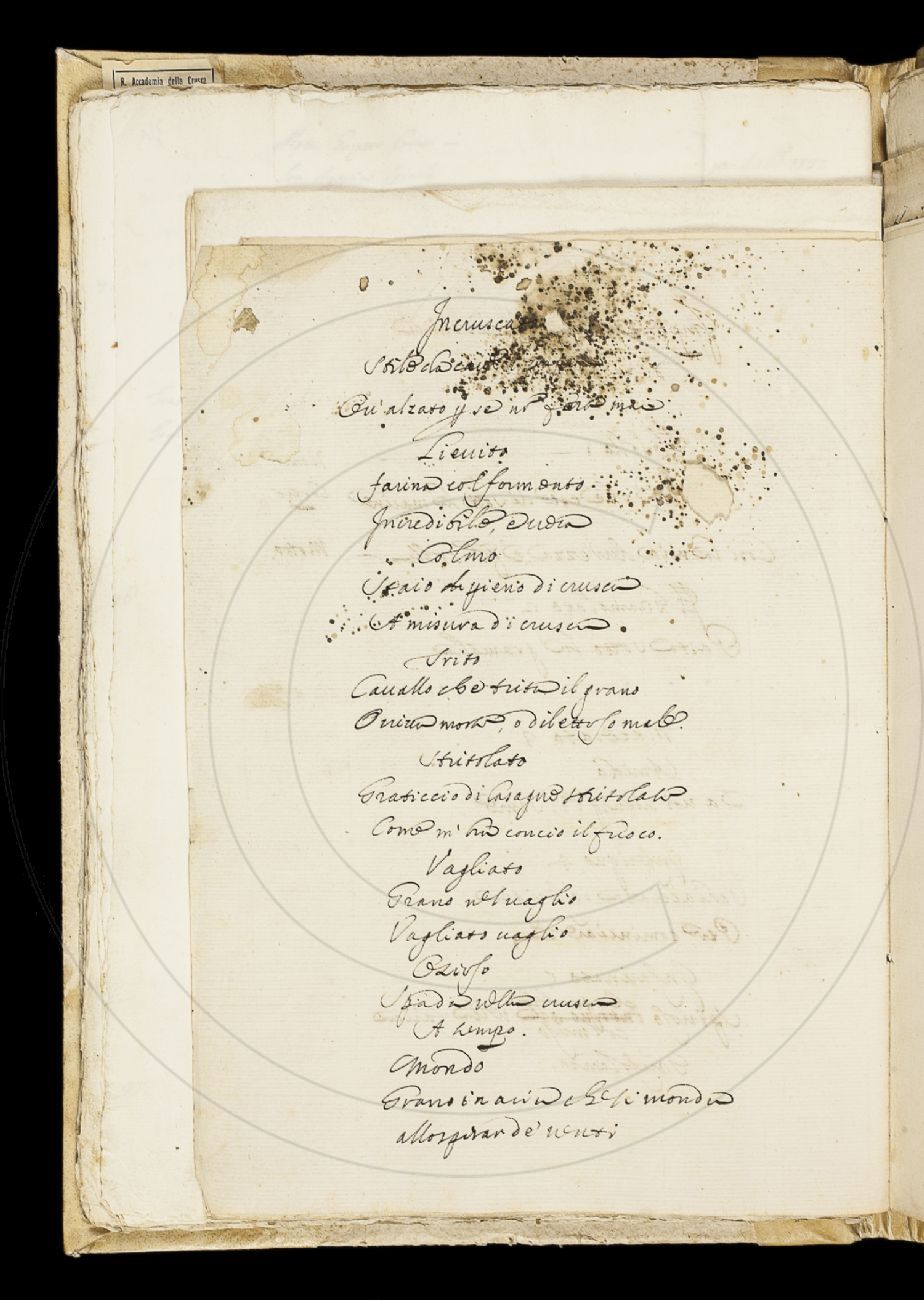 R. Accademia della Crusca
Incrusca
Stile da
Ch' alzato p se nō
Lieuito
farina col formento.
Incredibile, e uera
Colmo
Staio pieno di crusca
A misura di crusca.
Trito
Cauallo che trita il grano
O uiua morte, o dilettoso male.
Stritolato
Graticcio di lasagne stritolate
Come m' hà concio il fuoco.
Vagliato
Grano nel uaglio
Vagliato uaglio
Ozioso
Spada nella crusca
A tempo.
Mondo
Grano in aria che si monda
allo spirar de' uenti